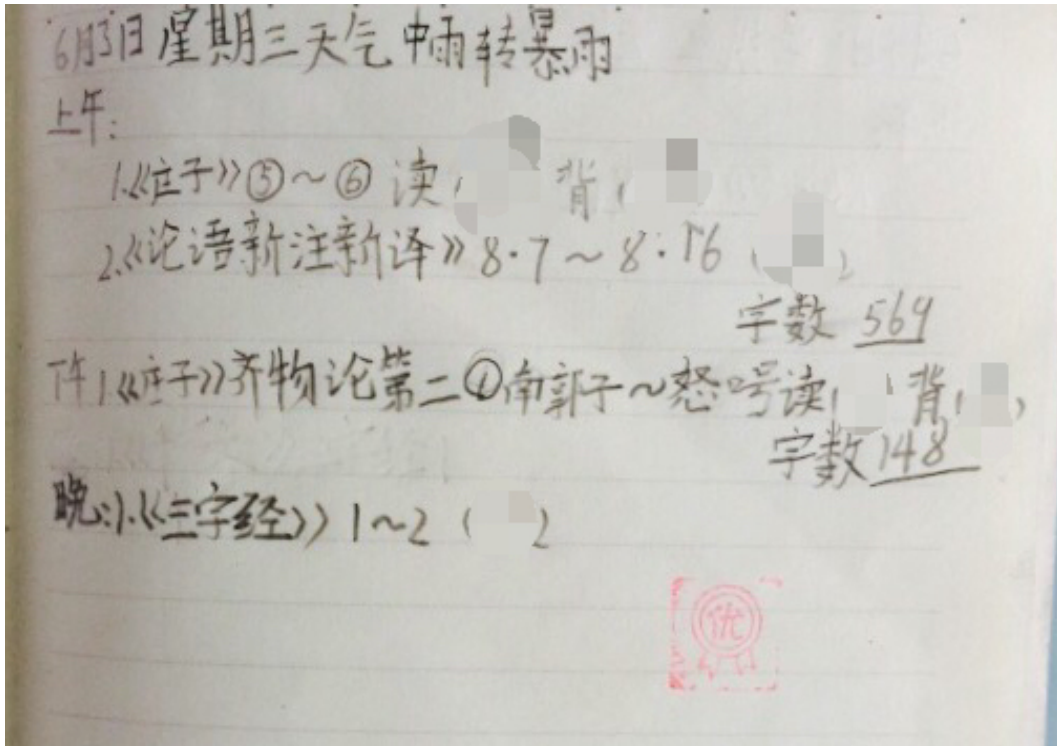 6月3日星期三天气中雨转暴雨
上午:
1.《庄子》⑤~⑥ 读( 背(
2.《论语新注新译》8.7~8.16( )
字数 569
下午1.《庄子》齐物论第二①南郭子~怒号读( 背( )
字数148
晚:1.《三字经》1~2( )
优